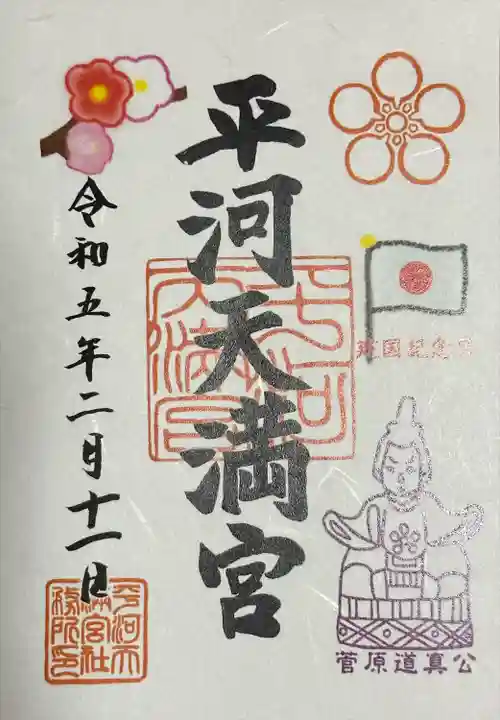 平河天満宮
建国記念日
菅原道真公
令和五年二月十一日
平河天
満宮社
務所印